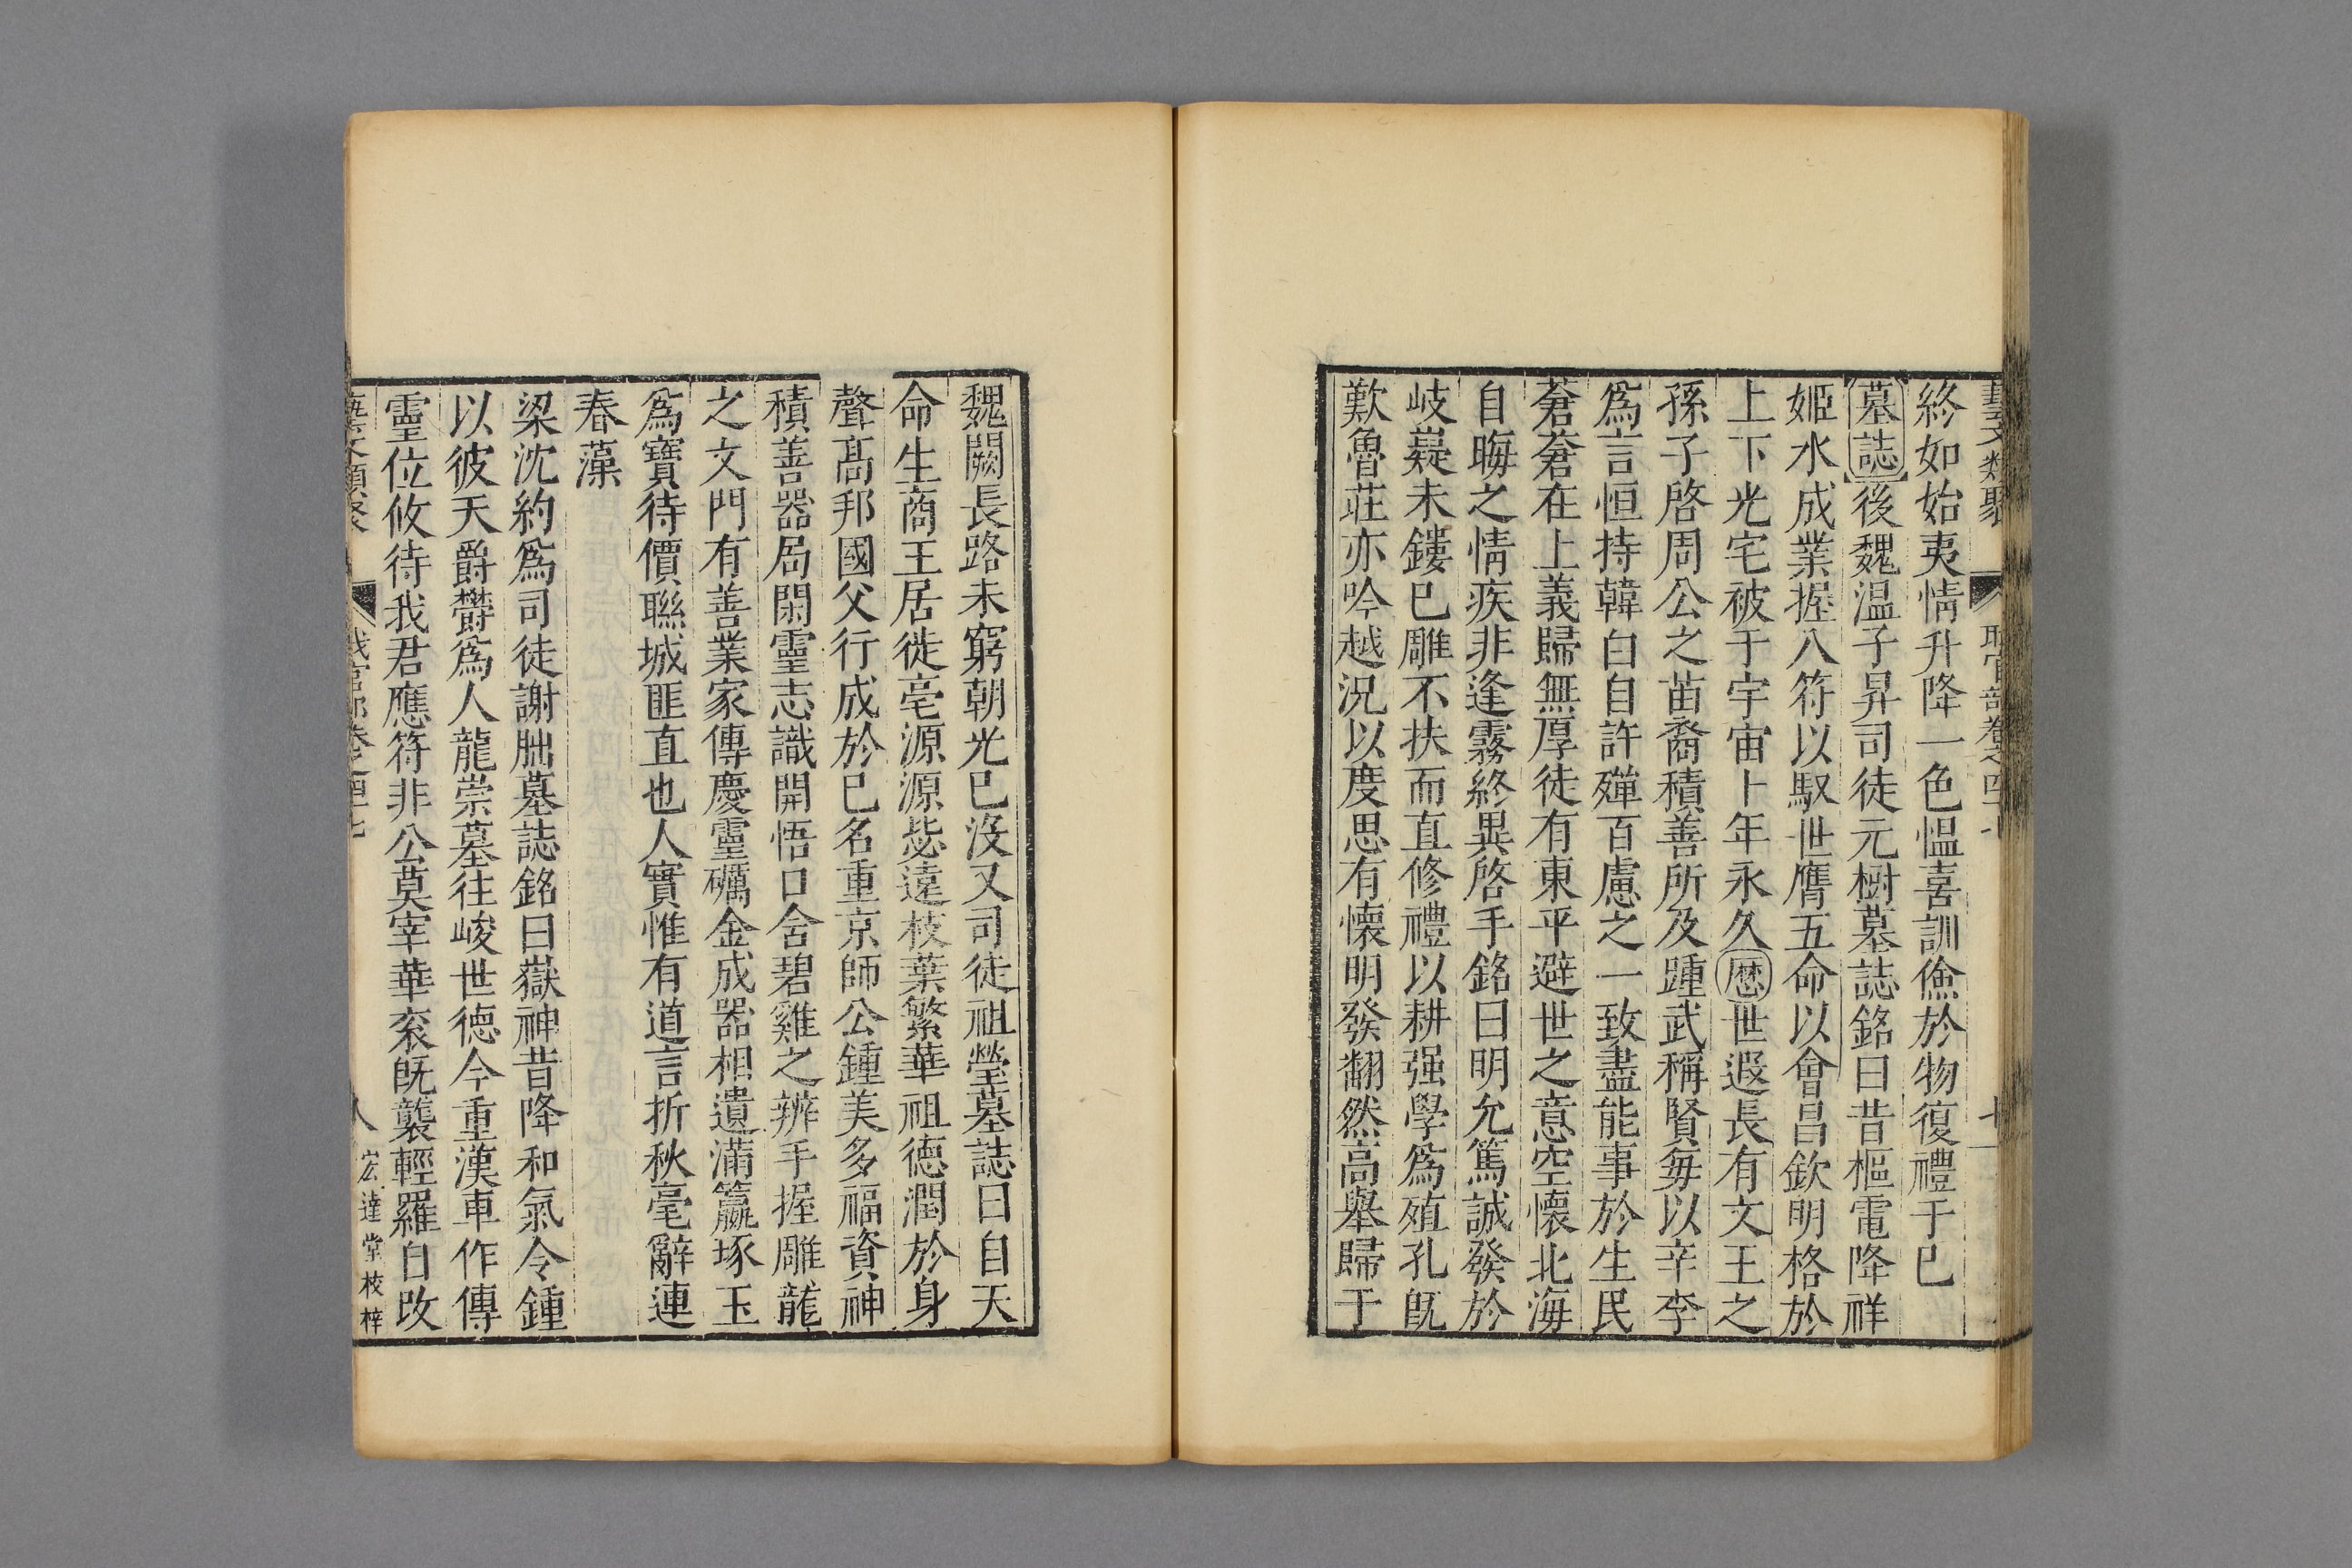 藝文類聚 職官部卷之四十七 七
終如始夷情升降一色慍喜訓儉於物復禮于已
墓誌後魏温子昇司徒元樹墓誌銘曰昔樞電降祥
姬水成業握八符以馭世膺五命以會昌欽明格於
上下光宅被于宇宙卜年永久歴世遐長有文王之
孫子啓周公之苗裔積善所及踵武稱賢毎以辛李
爲言恒持韓白自許殫百慮之一致盡能事於生民
蒼蒼在上義歸無厚徒有東平避世之意空懷北海
自晦之情疾非逢霧終異啓手銘曰明允篤誠發於
岐嶷未鏤已雕不扶而直修禮以耕强學爲殖孔旣
歎魯莊亦吟越況以度思有懷明發翻然高舉歸于
魏闕長路未窮朝光已沒又司徒祖瑩墓誌曰自天
命生商王居徙亳源源毖遠枝葉繁華祖德潤於身
聲高邦國父行成於已名重京師公鍾美多福資神
積善器局閑靈志識開悟口含碧雞之辨手握雕龍
之文門有善業家傳慶靈礪金成器相遺滿籯琢玉
爲寶待價聮城匪直也人實惟有道言折秋毫辭連
春藻
梁沈約爲司徒謝朏墓誌銘曰嶽神昔降和氣令鍾
以彼天爵鬱爲人龍崇墓往峻世德今重漢車作傳
靈位攸待我君應符非公莫宰華衮旣襲輕羅白改
藝文類聚 職官部卷之四十七 八 宏達堂校梓